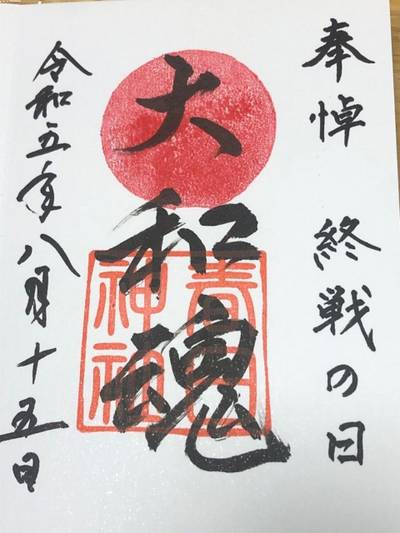 奉悼 終戦の日
大和魂
春日神社
令和五年八月十五日